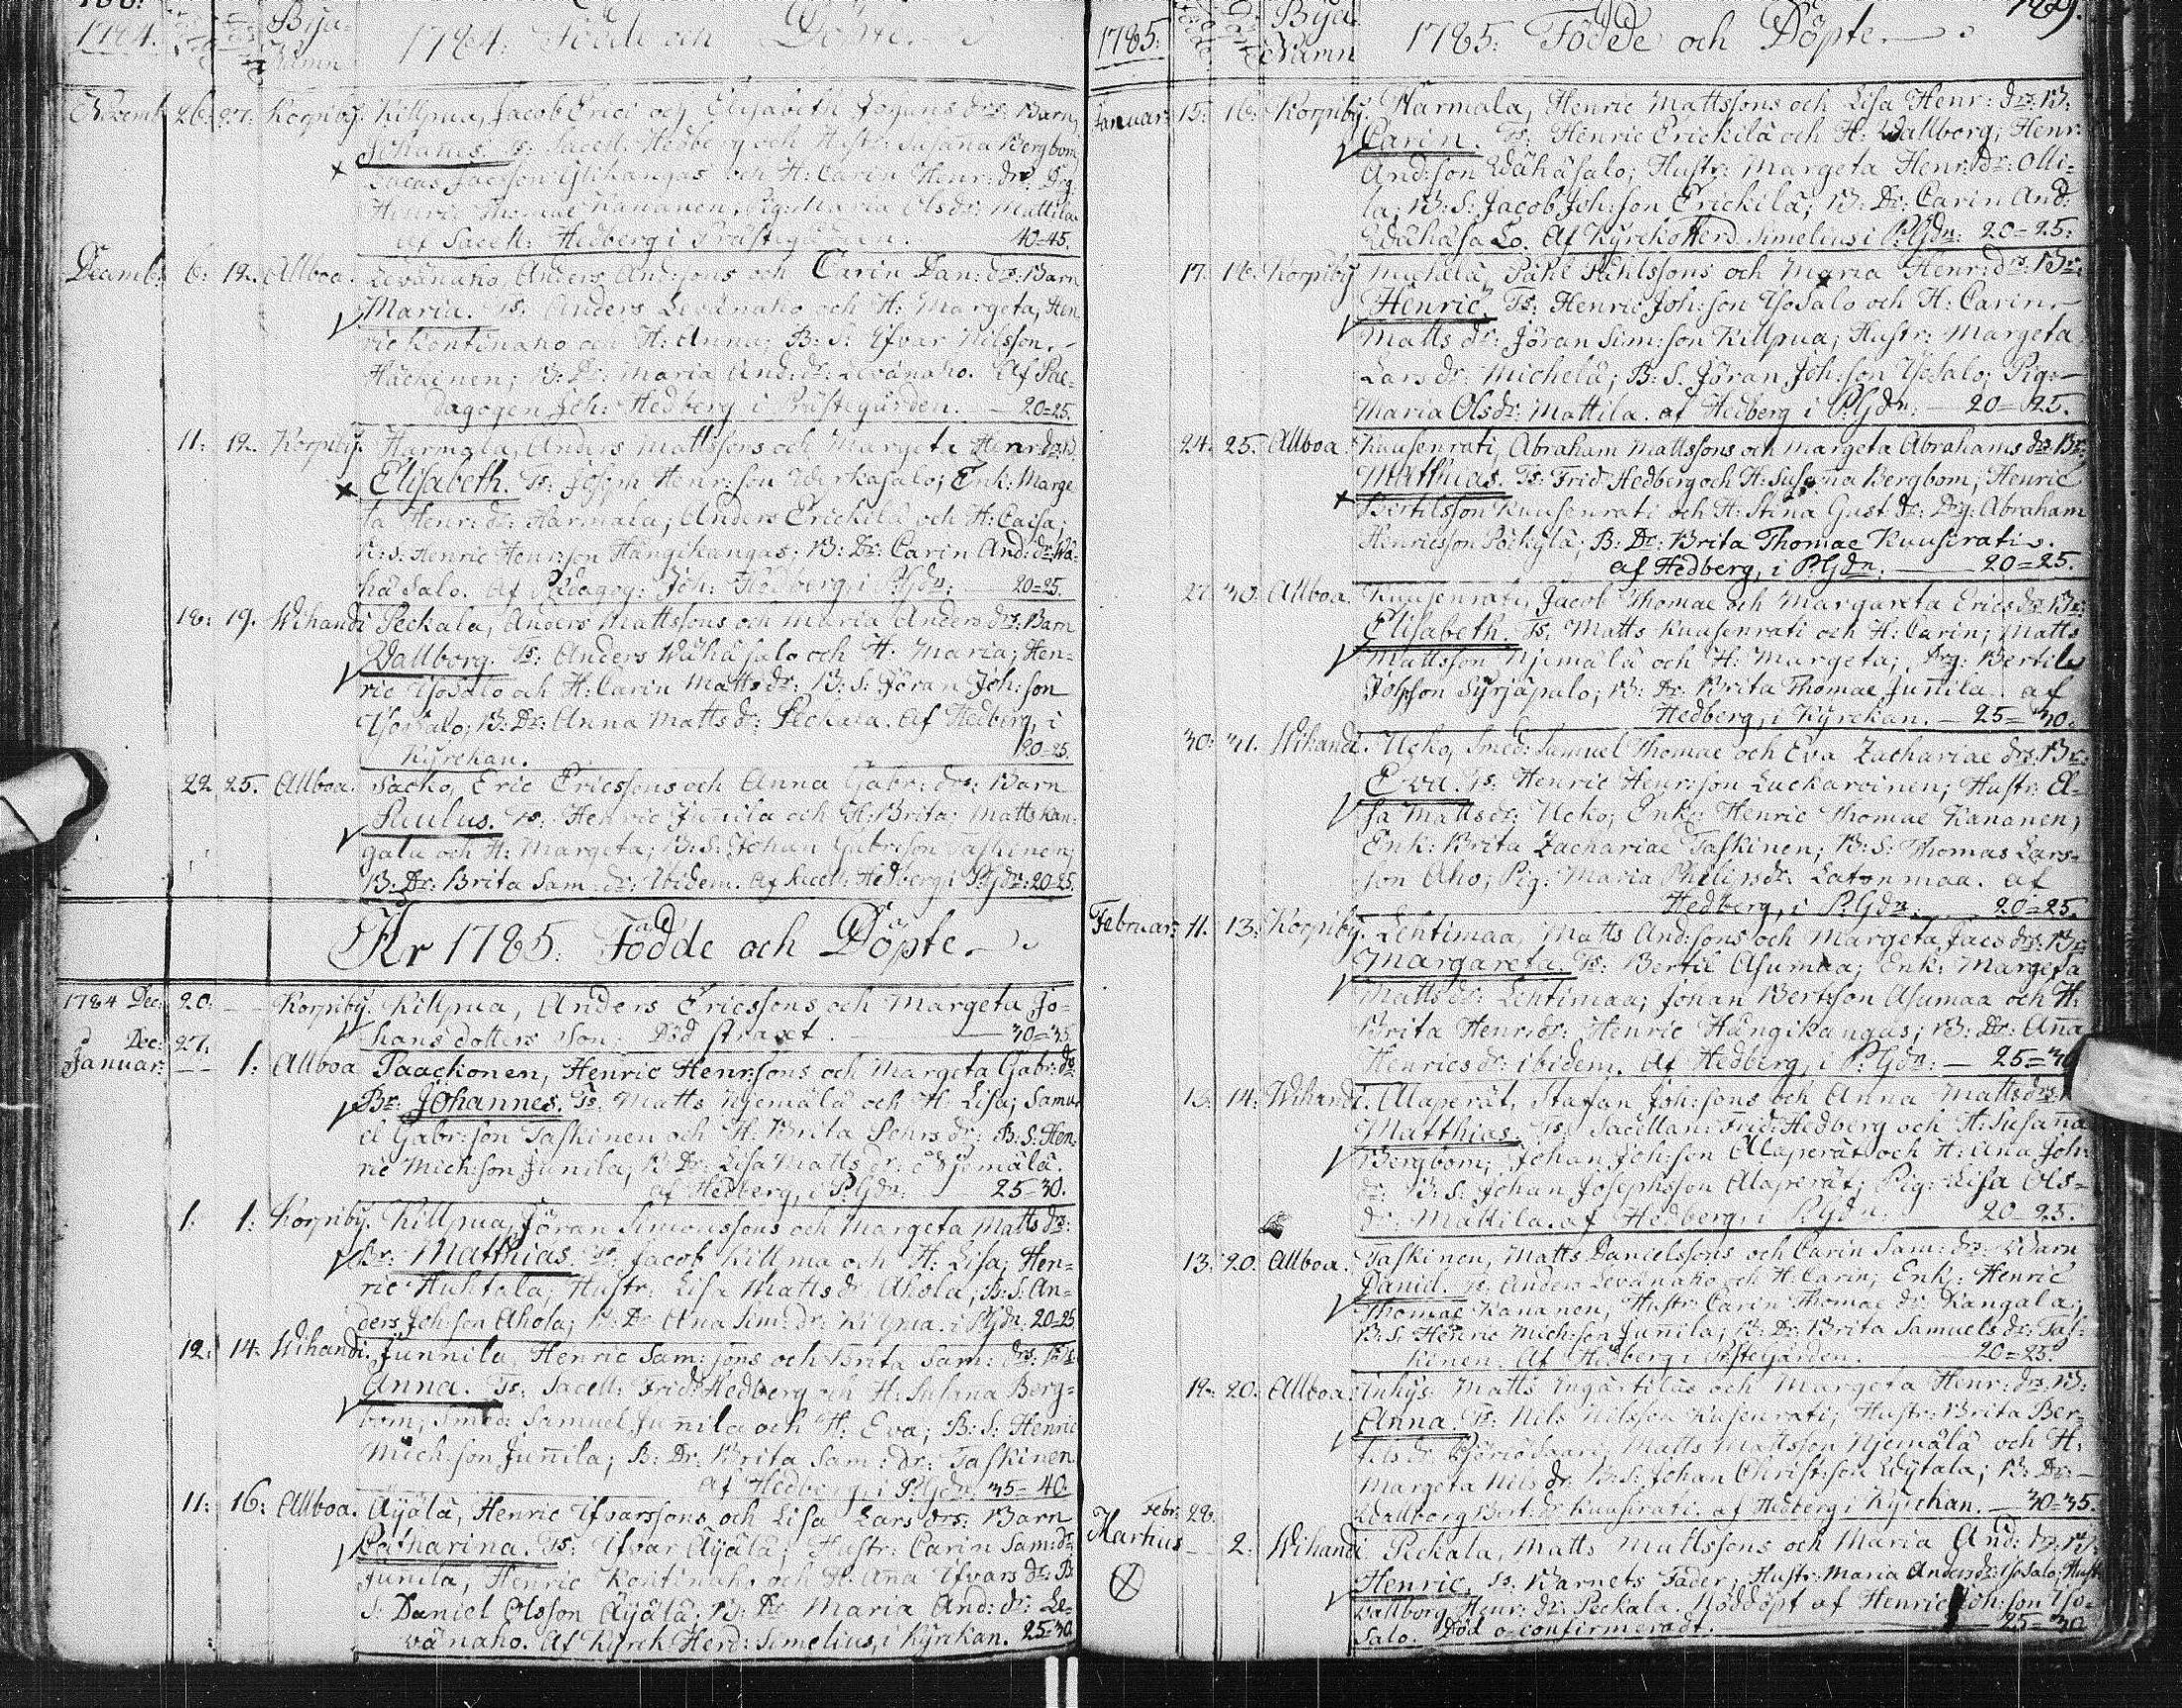 1784.
Bya
Namn
1784. Födde och Döpte.
Novemb: 26. 27. Korpiby. Killpua, Jacob Erici och Elisabeth Johans drs: Barn
Johanes. Ts: Sacell. Hedberg och Hustr: Susana Bergbom
Jacsson och H: Carin Henr: dr: Drg:
Henric Thomae Kananen, Pig: Maria Olsdr: Mattila
af Sacell: Hedberg i Prästegården. 40=45.
Decemb: 6: 12. Allboa. Levänaho, Anders And:sons och Carin Dan: drs: Barn
Maria. Ts: Anders Levänaho och H: Margeta, Hen
ric Kontinaho och H: Anna; B: S: Ifvar Nilsson
Häckinen; B: Dr: Maria And: dr: Levänaho. Af Pae-
dagogen Joh: Hedberg i Prästegården. 20=25.
11: 12. Korpiby. Harmala, Anders Mattssons och Margeta Henr: drs: B.
Elisabeth. Ts: Joseph Henr: son Wirkasalo; Enk: Marge
ta Henr: dr: Harmala; Anders Erickilä och H: Caisa;
B: S: Henric Henr:son Hångikangas; B: Dr: Carin And: dr: Wä-
häsalo. Af Pædagog: Joh: Hedberg, i P:Gdn: 20=25.
18: 19. Wihandi Peckala, Anders Mattssons och Maria Anders drs: Barn
Wallborg. Ts: Anders Wähäsalo och H: Maria; Hen-
ric Ysosalo och H: Carin Matts dr: B: S: Jöran Joh: son
Ysosalo; B: Dr: Anna Matts dr: Peckala. Af Hedberg, i
Kyrckan. 20=25.
22 25. Allboa. Sacko, Eric Ericssons och Anna Gabr: drs: Barn
Paulus. Ts: Henric Junila och H: Brita; Matts Kan-
gala och H: Margeta; B: S: Johan Gabr:son Taskinen;
B: Dr: Brita Sam: dr: Ibidem. Af Sacell: Hedberg i P:Gdn: 20-25.
Åhr 1785. Födde och Döpte.
1784 Dec: 20: — Korpiby. Killpua, Anders Ericssons och Margeta Jo-
hans dotters Son; Död straxt. 30=35.
Dec: 27.
Januar: — 1: Allboa Paackonen, Henric Henr:sons och Margeta Gabr: drs
Br: Johannes. Ts: Matts Njemälä och H: Lisa; Samu-
el Gabr: son Taskinen och H: Brita Pehrs dr: B: S: Hen-
ric Mich:son Junila; B: Dr: Lisa Matts dr: Njemälä.
af Hedberg, i P:Gdn: 25=30.
1: 1: Korpiby. Killpua, Jöran Simonssons och Margeta Matts drs:
Br: Matthias. Ts: Jacob Killpua och H: Lisa; Hen-
ric Huhtala; Hustr: Lisa Matts dr: Ahola; B: S: An-
ders Joh:son Ahola; B: Dr: Ana Sim: dr: Killpua. i P:Gdn: 20=25
12: 14: Wihandi. Junnila, Henric Sam: sons och Brita Sam: drs: Br:
Anna. Ts: Sacell: Frid: Hedberg och H: Susana Berg-
bom; Smed: Samuel Junila och H: Eva; B: S: Henric
Mich:son Junila; B: Dr: Brita Sam: dr: Taskinen
af Hedberg, i P:Gdn. 35=40.
11: 16: Allboa. Äyälä, Henric Ifvarssons och Lisa Lars drs: Barn
Catharina. Ts: Ifvar Äyälä; Hustr: Carin Sam: dr:
Junila, Henric Kontinaho och H: Ana Ifvars dr: B:
S: Daniel Olsson Äyälä; B: Dr: Maria And: dr: Le-
vänaho. Af Kyrck Herd: Simelius, i Kyrckan. 25=30
1785:
Bya
Namn
1785: Födde och Döpte.
Januar: 15: 16: Korpiby. Harmala, Henric Mattssons och Lisa Henr: drs: B:
Carin. Ts: Henric Erickilä och H: Wallborg; Henr:
And:son Wähäsalo; Hustr: Margeta Henr: dr: Olli-
la; B: S: Jacob Joh:son Erickilä; B: Dr: Carin And:
Wähäsalo. Af Kyrcko Herd. Simelius i P:Gdn: 20=25:
17: 18: Korpiby Michelä, Påhl Påhlssons och Maria Henr: drs: Br:
Henric. Ts: Henric Joh:son Ysosalo och H: Carin
Matts dr: Jöran Sim:son Killpua; Hustr: Margeta
Lars dr: Michelä; B: S. Jöran Joh:son Ysosalo; Pig:
Maria Olsdr: Mattila. af Hedberg i P:Gdn. 20=25.
24. 25. Allboa. Kuusenrati, Abraham Mattssons och Margeta Abrahams drs: Br:
Matthias. Ts: Frid: Hedberg och H: Susana Bergbom; Henric
Bertilsson Kuusenrati och H: Stina Gust: dr: Drg: Abraham
Henricsson Pöckylä; B: Dr: Brita Thomae Kuusirati.
af Hedberg, i P:Gdn. 20=25.
27 30. Allboa. Kuusenrati, Jacob Thomae och Margareta Erics drs: Br:
Elisabeth. Ts: Matts Kuusenrati och H: Carin; Matts
Mattsson Njemälä och H: Margeta; Drg: Bertil
Johsson Syrjäpalo; B: Dr: Brita Thomae Junnila. af
Hedberg, i Kyrckan. 25=30.
30: 31. Wihandi. Ucko, Smed: Samuel Thomae och Eva Zachariae drs: Br:
Eva. Ts: Henric Henr:son Luckaroinen; Hustr: El-
sa Matts dr: Ucko; Enkl: Henric Thomae Kananen;
Enk: Brita Zachariae Taskinen; B: S: Thomas Lars-
son Aho; Pig: Maria Philips dr: Latonmaa. af
Hedberg, i P:Gdn. 20=25.
Februar: 11. 13. Korpiby. Lehtimaa, Matts And:sons och Margeta Jacs drs: Br:
Margareta. Ts: Bertil Asumaa; Enk: Margeta
Matts dr: Lehtimaa; Johan Bertsson Asumaa och H:
Brita Henr:dr: Henric Hångikangas; B: Dr: Aña
Henrics dr: ibidem. Af Hedberg, i P:Gdn: 25=30
13: 14: Wihandi. Alaperät, Stafan Joh:sons och Anna Matts drs:
Matthias. Ts: Sacellan: Frid: Hedberg och H: Susana
Bergbom; Johan Joh:son Alaperät och H: Ana Joh:
dr: B: S: Johan Josephsson Alaperät; Pig: Lisa Ols-
dr: Mattila. af Hedberg, i P:Gdn: 20=25.
13: 20. Allboa. Taskinen, Matts Danielssons och Carin Sam: drs: Barn
Daniel. Ts: Anders Levänaho och H: Carin; Enkl: Henric
Thomae Kananen; Hustr: Carin Thomae dr: Kangala;
B: S: Henric Mich:son Junnila; B: Dr: Brita Samuels dr: Tas-
kinen. Af Hedberg i Prästegården. 20=25.
12. 20: Allboa: Inhys: Matts Ingärtiläs och Margeta Henr: drs: B:
Anna. Ts: Nils Nilsson Kusenrati; Hustr: Brita Ber-
tils dr: Matts Mattsson Njemälä och H:
Margeta Nils dr: B: S: Johan Christ:son Wytala; B: Dr:
Wallborg Bert: dr: Kuusirati. af Hedberg i Kyrckan. 30=35.
Febr: 28.
Martius — 2. Wihandi Peckala, Matts Mattssons och Maria And: drs: Br:
Henric. Ts: Barnets Fader; Hustr: Maria Anders dr: Ysosalo; Hustr
Wallborg Henr: dr: Peckala. Nöddöpt af Henric Joh:son Yso-
salo. Död o-confirmeradt. 25=30